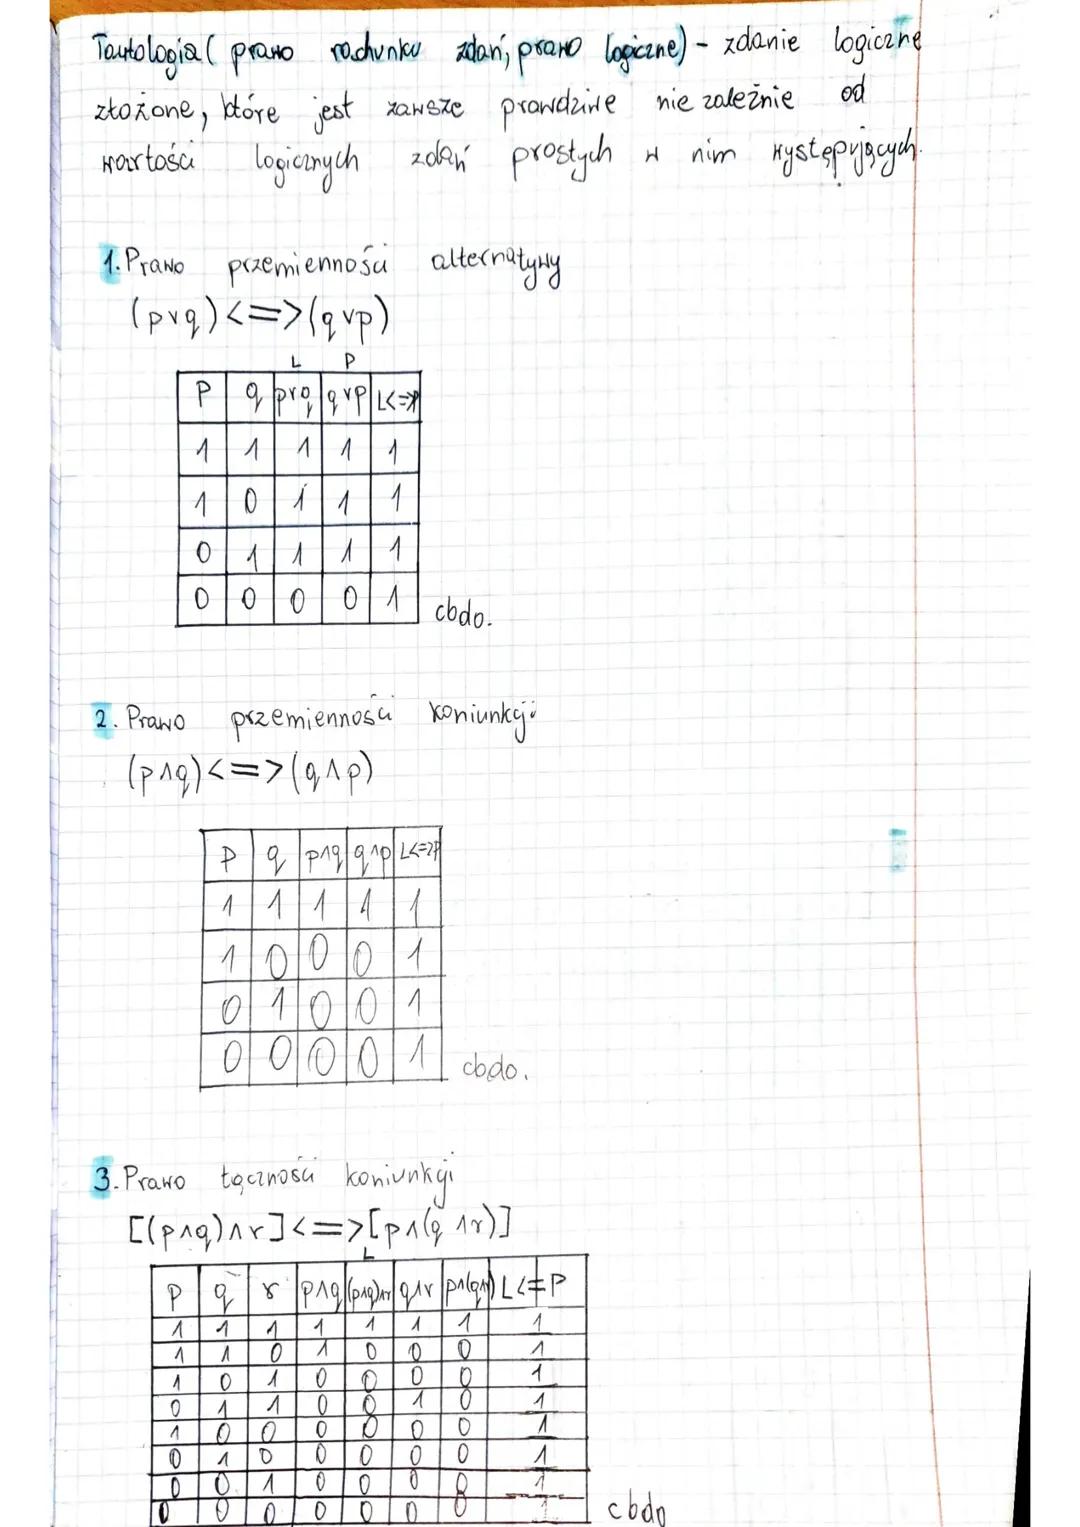 Tautologia ( prawo rachunku zdań, prawo logiczne) - zdanie logiczne
złożone, które jest zawsze prawdziwe nie zależnie od
wartości logicznych zdań prostych w nim występujących.
1. Prawo przemienności alternatywy
(p∨q)<=>(q∨p)
L P
p q p∨q q∨p L<=>P
1 1 1 1 1
1 0 1 1 1
0 1 1 1 1
0 0 0 0 1 cbdo.
2. Prawo przemienności koniunkcji
(p∧q)<=>(q∧p)
p q p∧q q∧p L<=>P
1 1 1 1 1
1 0 0 0 1
0 1 0 0 1
0 0 0 0 1 cbdo.
3. Prawo łączności koniunkcji
[(p∧q)∧r]<=>[p∧(q∧r)]
L
p q r p∧q (p∧q)∧r q∧r p∧(q∧r) L<=P
1 1 1 1 1 1 1 1
1 1 0 1 0 0 0 1
1 0 1 0 0 0 0 1
0 1 1 0 0 1 0 1
1 0 0 0 0 0 0 1
0 1 0 0 0 0 0 1
0 0 1 0 0 0 0 1
0 0 0 0 0 0 0 1 cbdo